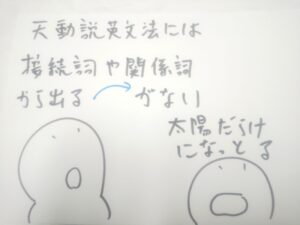 天動説英文法には
接続詞や関係詞
から出る⌒がない
太陽だらけ
になっとる